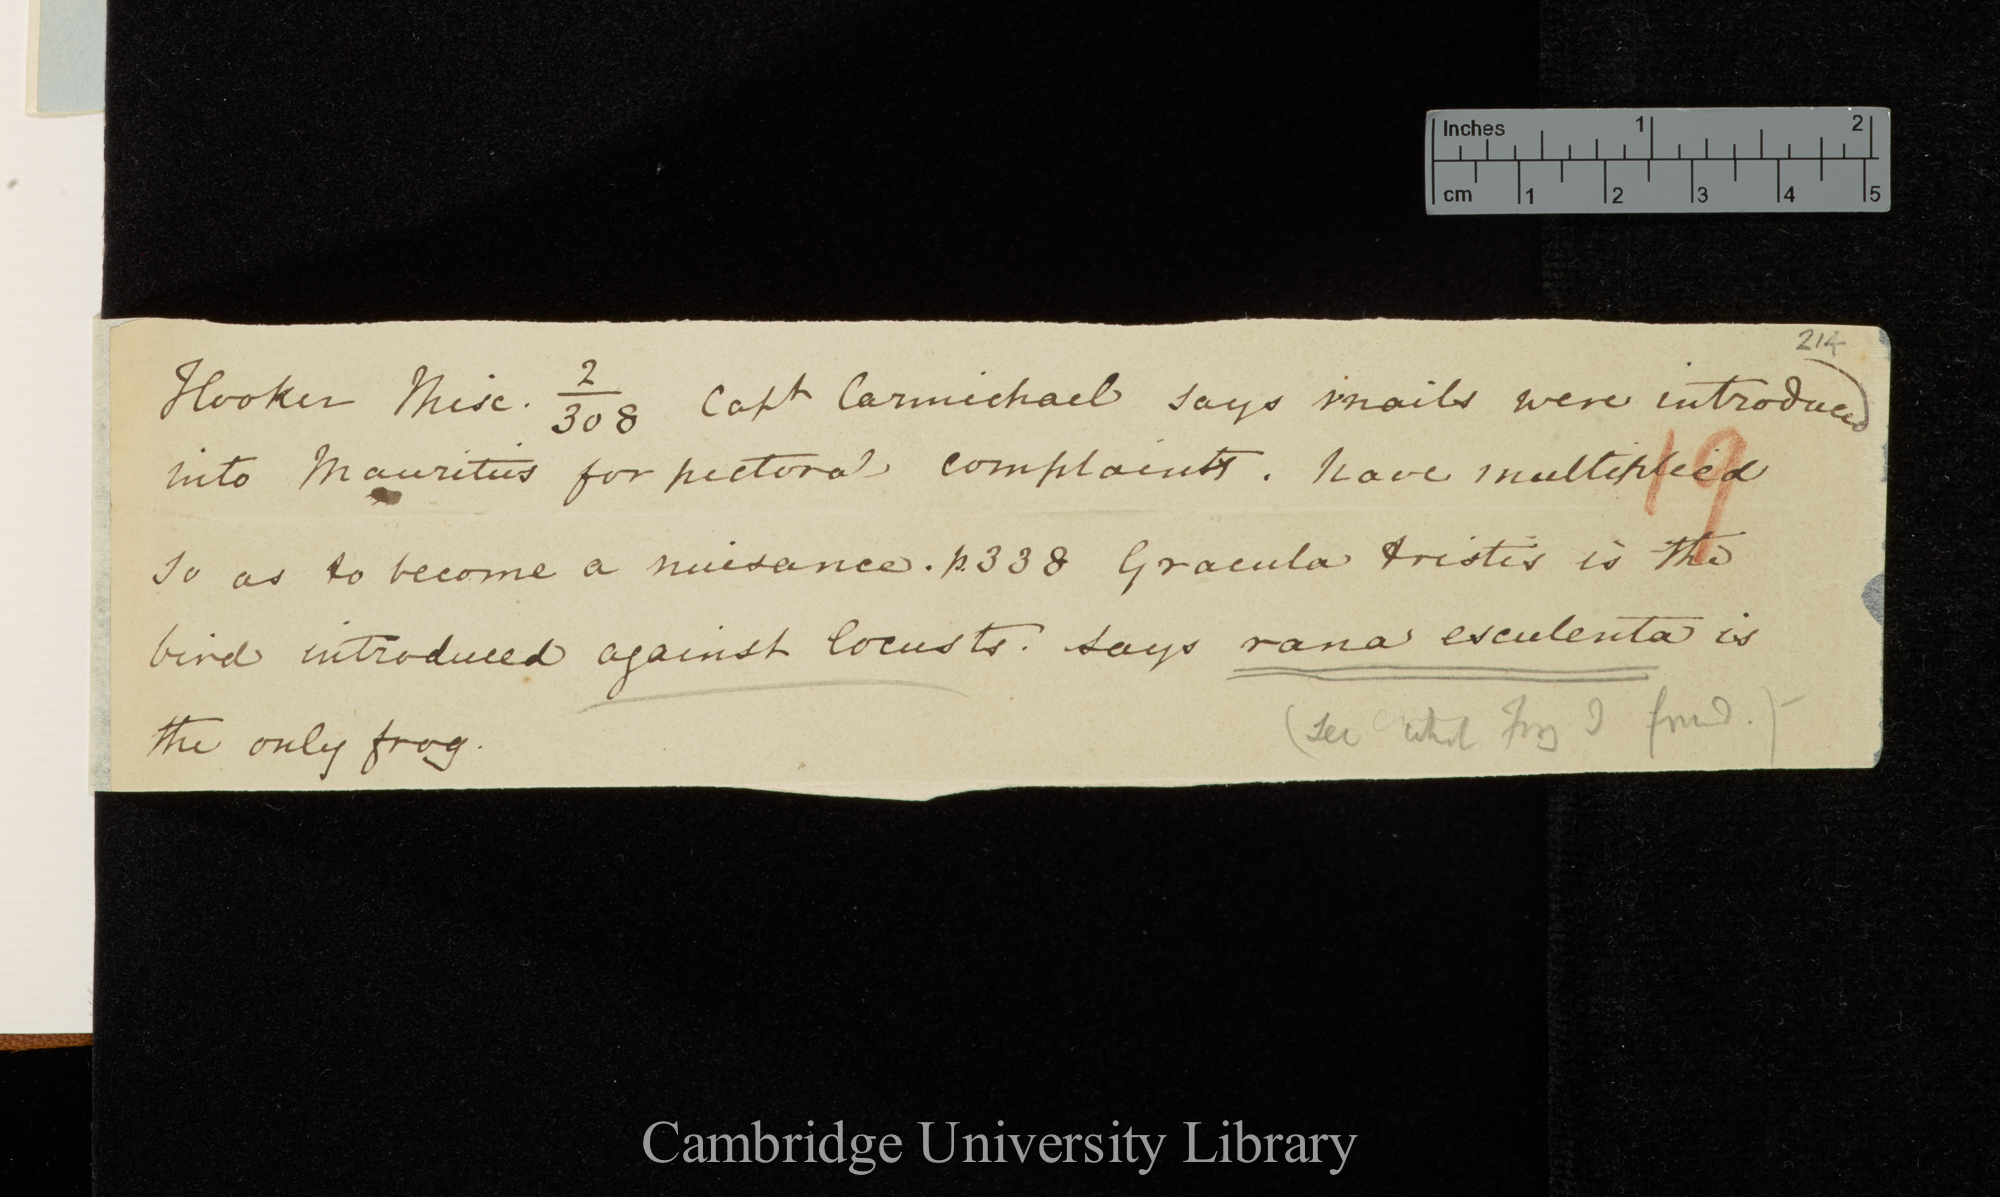 Inches 1 2
cm 1 2 3 4 5
214
Hooker Misc. 2/308 Capt Carmichael says snails were introduced
into Mauritius for pectoral complaints. have multiplied
19
so as to become a nuisance. p.338 Gracula tristis is the
bird introduced against locusts. says rana esculenta is
the only frog.
(see what Frog I found.)
Cambridge University Library